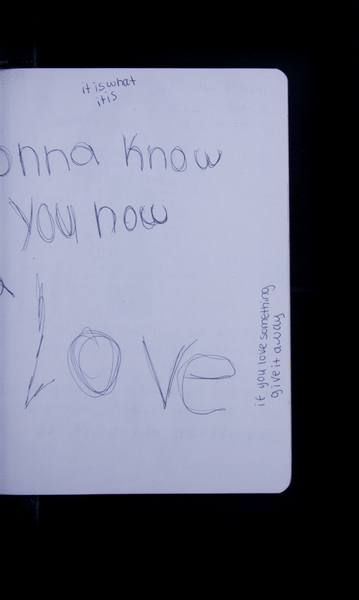 it is what
it is
onna know
you now
Love
if you love something
give it away